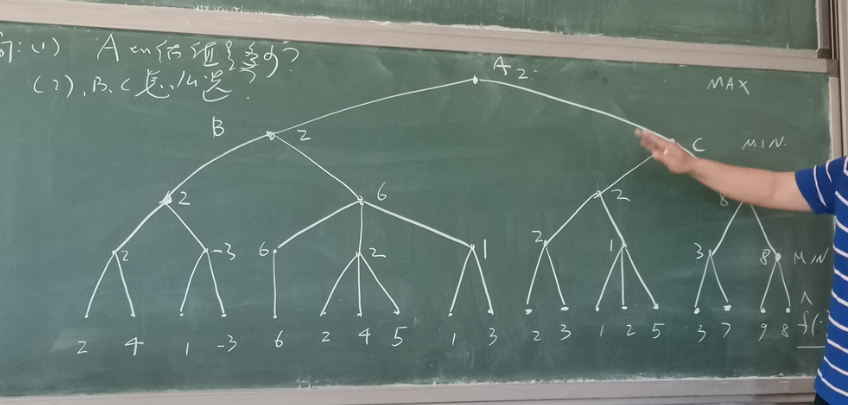 问:(1) A的估值是多少?
(2), B、C怎么选.
A 2. MAX
B 2 C MIN.
2 6 2 8
2 -3 6 2 1 2 1 3 8 MIN
2 4 1 -3 6 2 4 5 1 3 2 3 1 2 5 3 7 9 8 f(